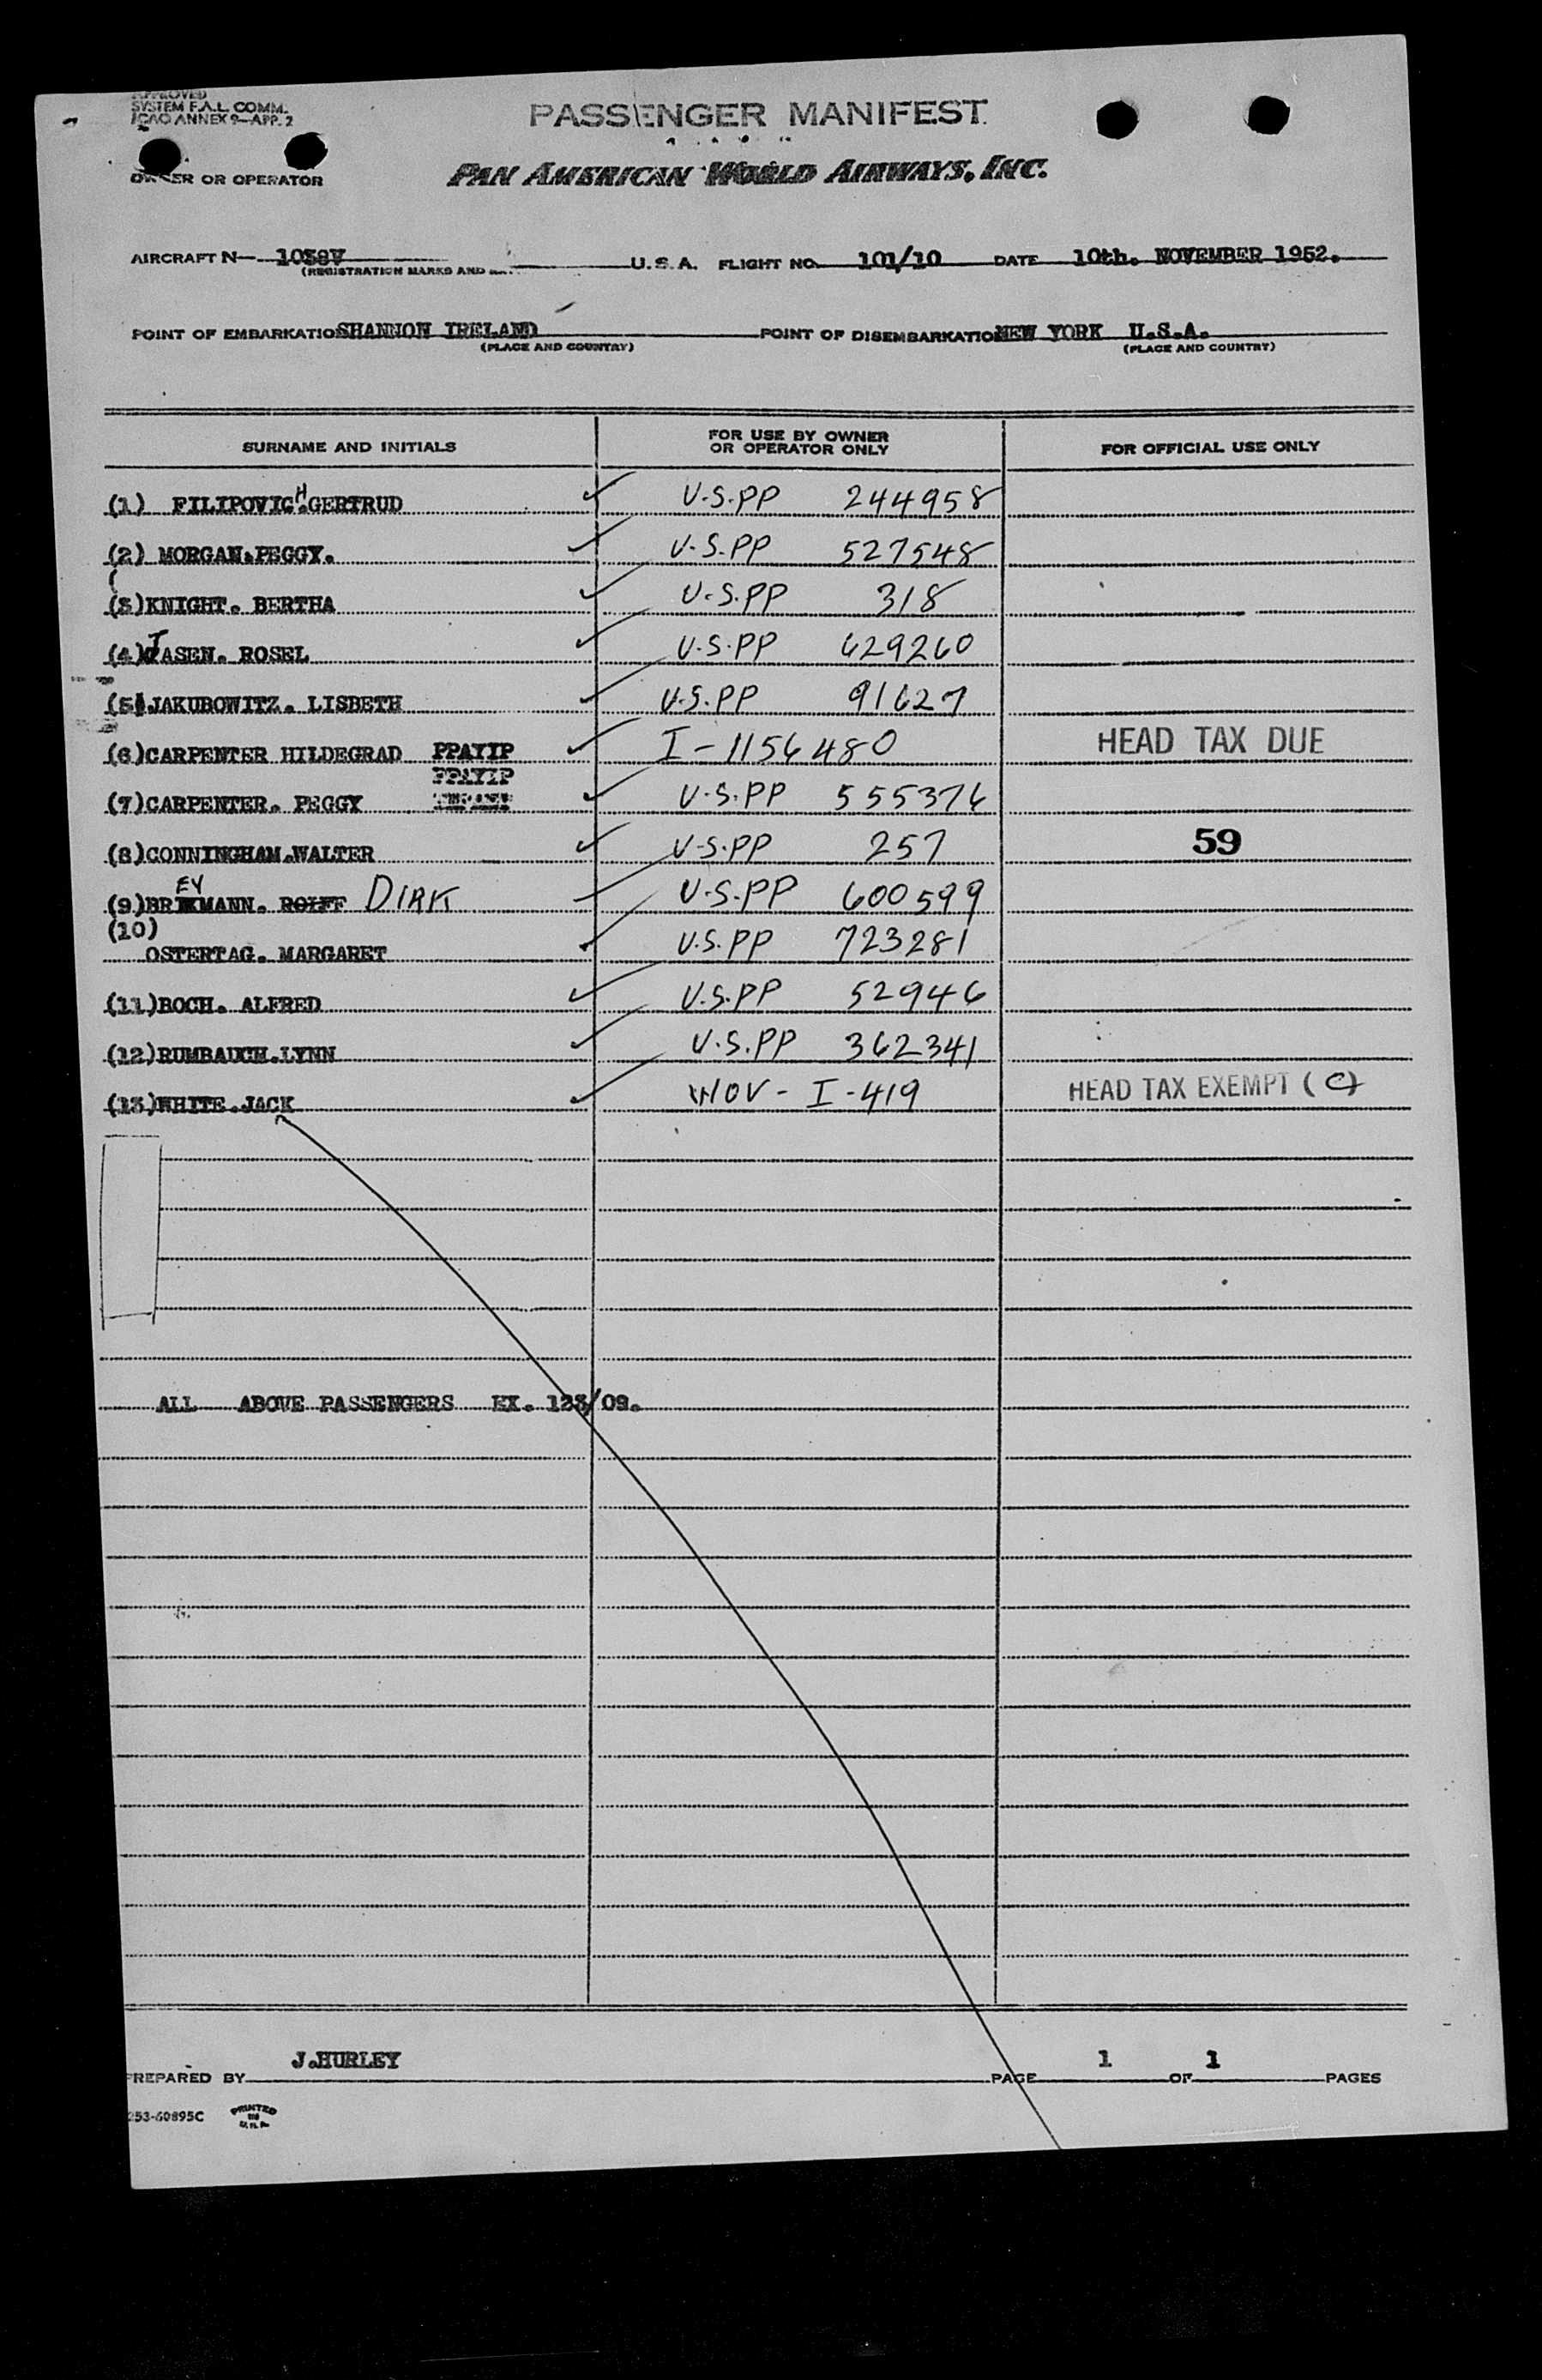 APPROVED
SYSTEM F.A.L. COMM.
ICAO ANNEX 9—APP. 2
PASSENGER MANIFEST
OWNER OR OPERATOR PAN AMERICAN WORLD AIRWAYS, INC.
AIRCRAFT N— 1038V U.S.A. FLIGHT NO. 101/10 DATE 10th. NOVEMBER 1952.
(REGISTRATION MARKS AND
POINT OF EMBARKATION SHANNON IRELAND POINT OF DISEMBARKATION NEW YORK U.S.A.
(PLACE AND COUNTRY) (PLACE AND COUNTRY)
SURNAME AND INITIALS FOR USE BY OWNER OR OPERATOR ONLY FOR OFFICIAL USE ONLY
(1) FILIPOVICH.GERTRUD U.S.PP 244958
(2) MORGAN.PEGGY. U.S.PP 527548
(
(3)KNIGHT. BERTHA U.S.PP 318
(4)JASEN. ROSEL U.S.PP 629260
(5)JAKUBOWITZ. LISBETH U.S.PP 91627
(6)CARPENTER HILDEGRAD PPAYIP I-1156480 HEAD TAX DUE
PPAYIP
(7)CARPENTER. PEGGY U.S.PP 555376
(8)CONNINGHAM.WALTER U.S.PP 257 59
EY
(9)BRIKMANN. ROLFF DIRK U.S.PP 600599
(10)
OSTERTAG. MARGARET U.S.PP 723281
(11)BOCH. ALFRED U.S.PP 52946
(12)RUMBAUGH.LYNN U.S.PP 362341
(13)WHITE.JACK WOV-I-419 HEAD TAX EXEMPT (C)
ALL ABOVE PASSENGERS EX. 123/09.
PREPARED BY J.HURLEY PAGE 1 OF 1 PAGES
253-60895C PRINTED IN U.S.A.